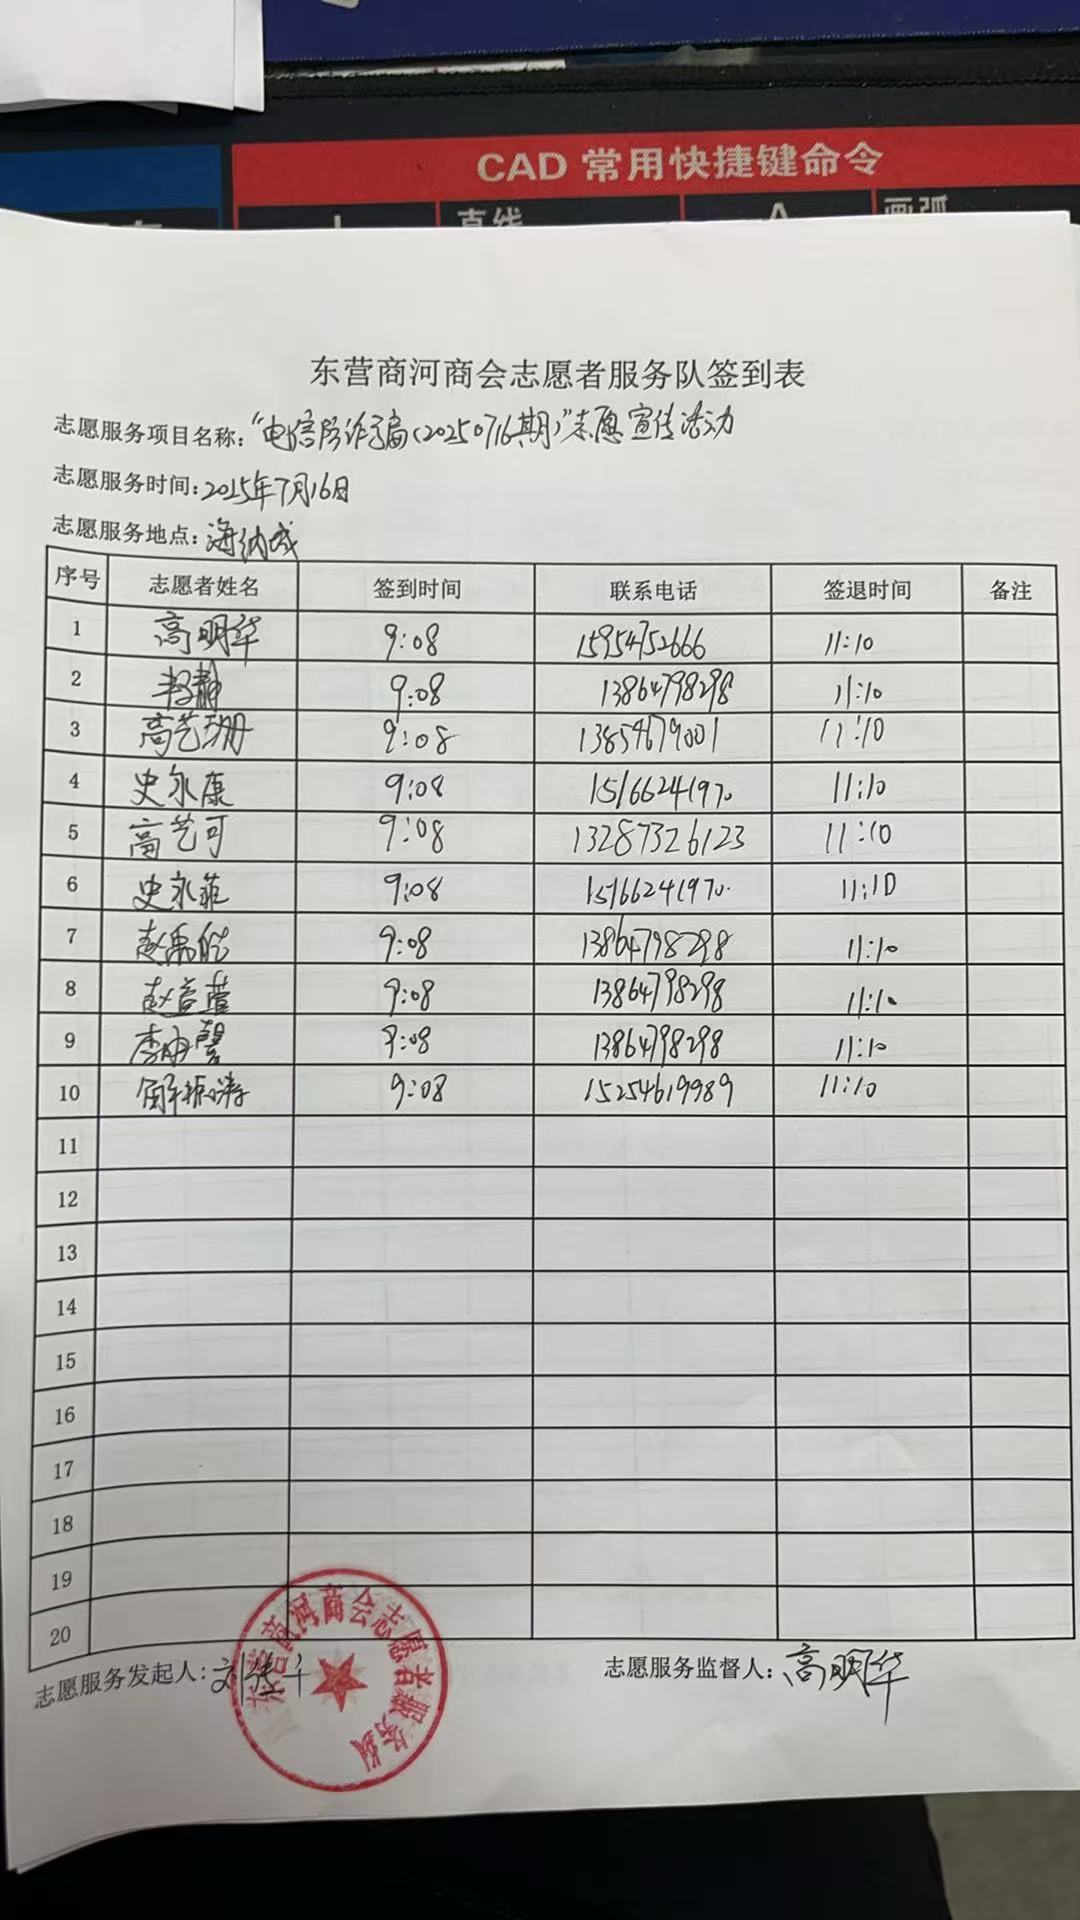 CAD 常用快捷键命令
直线 A 画弧
东营商河商会志愿者服务队签到表
志愿服务项目名称：“电信防诈骗（20250716期）”志愿宣传活动
志愿服务时间：2025年7月16日
志愿服务地点：海纳城
序号 志愿者姓名 签到时间 联系电话 签退时间 备注
1 高明华 9:08 15954752666 11:10
2 9:08 13864798298 11:10
3 高艺珊 9:08 13854679001 11:10
4 史永康 9:08 15166241970 11:10
5 高艺可 9:08 13287326123 11:10
6 史永菲 9:08 15166241970 11:10
7 赵禹皓 9:08 13864798298 11:10
8 赵萱萱 9:08 13864798298 11:10
9 李馨 9:08 13864798298 11:10
10 解振 9:08 15254619989 11:10
11
12
13
14
15
16
17
18
19
20
志愿服务发起人： 志愿服务监督人：高明华
东营商河商会志愿者服务队